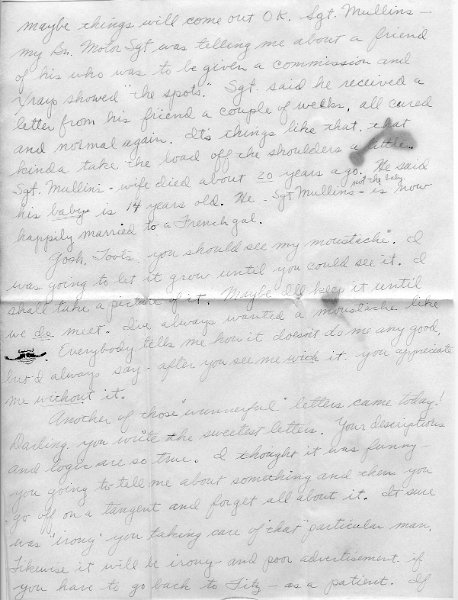 maybe things will come out O.K. Sgt. Mullins -
my Bn. Motor Sgt was telling me about a friend
of his who was to be given a commission and
Xrays showed "the spots." Sgt. said he received a
letter from his friend a couple of weeks, all cured
and normal again. It's things like that, that
kinda take the load off the shoulders a little.
Sgt. Mullins - wife died about 20 years ago. He said
not the baby
his baby is 14 years old. He - Sgt Mullins - is now
happily married to a French gal.
Gosh, Toots, you should see my moustache. I
was going to let it grow until you could see it. I
shall take a picture of it. Maybe I'll keep it until
we do meet. I've always wanted a moustache like
Everybody tells me how it doesn't do me any good,
but I always say - after you see me with it, you appreciate
me without it.
Another of those letters came today!
Darling, you write the sweetest letters. Your descriptions
and logic are so true. I thought it was funny
you going to tell me about something and then you
go off on a tangent and forget all about it. It sure
was "irony" you taking care of "that" particular man.
Likewise it will be irony and poor advertisement if
you have to go back to Fitz - as a patient. If